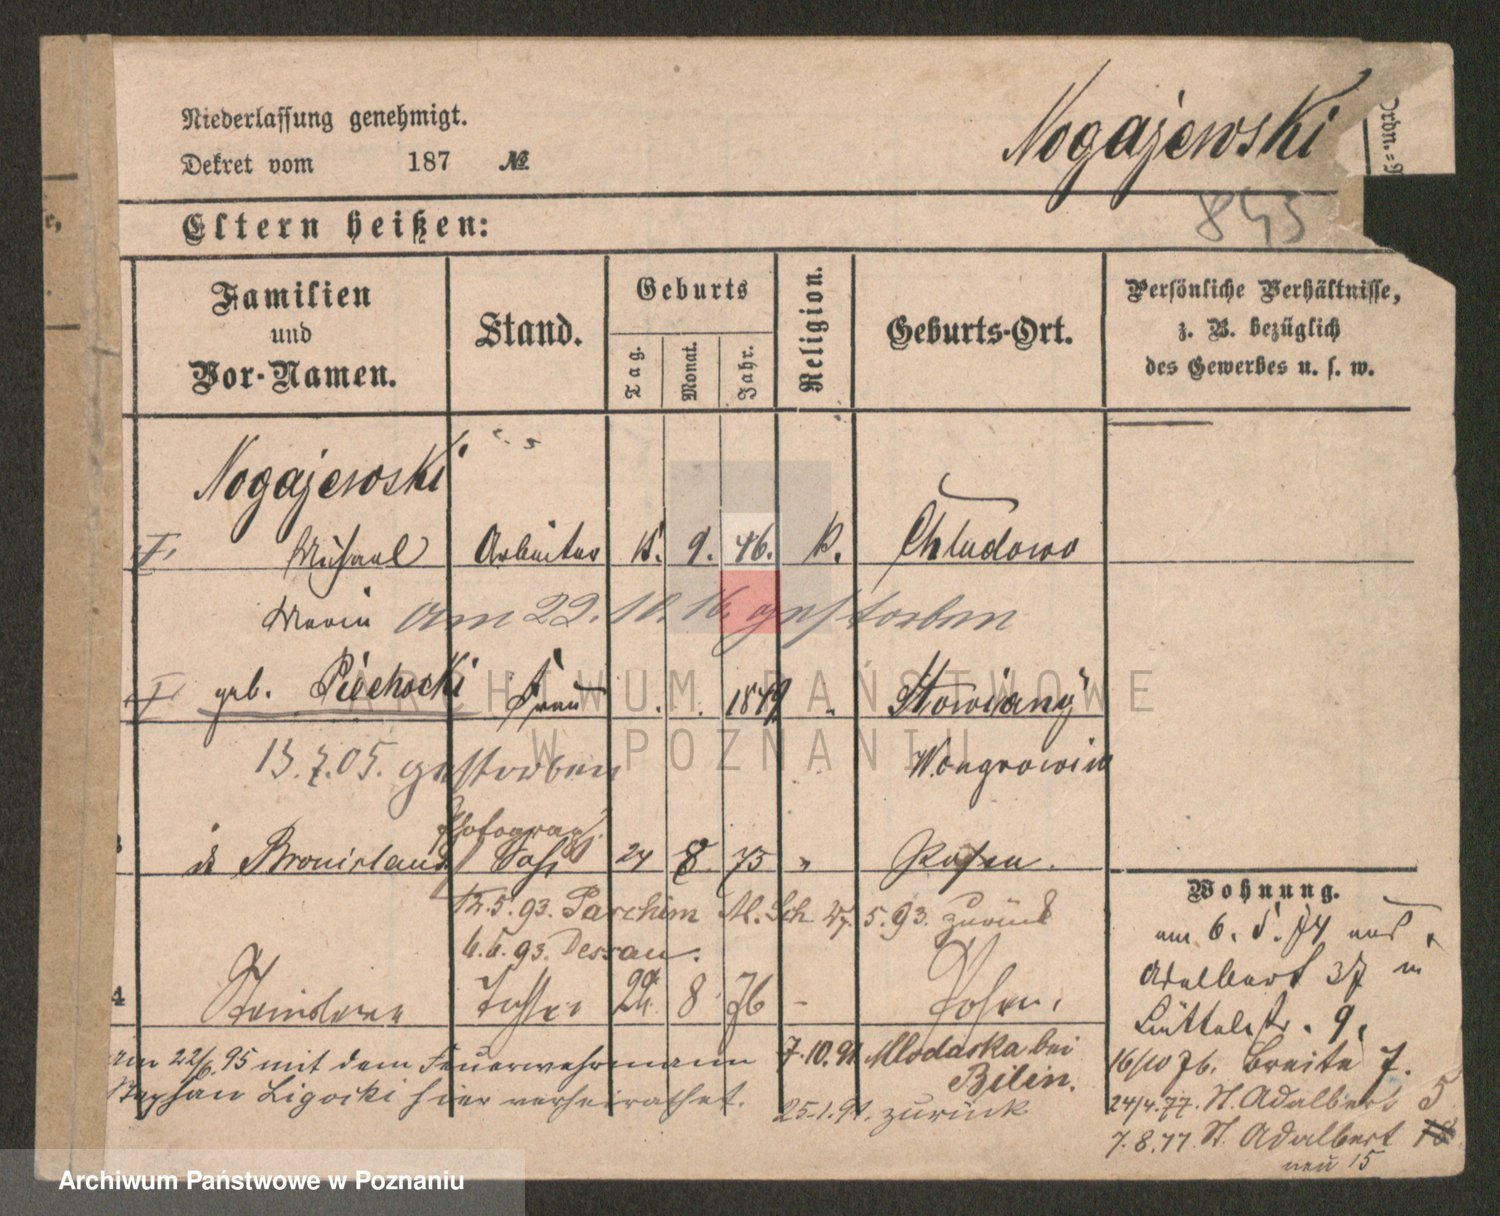 Niederlassung genehmigt.
Dekret vom 187 №
Nogajewski
Ordn.=
845
Eltern heißen:
Familien
und
Vor-Namen.
Stand.
Geburts
Tag.
Monat.
Jahr.
Religion.
Geburts-Ort.
Persönliche Verhältnisse,
z. B. bezüglich
des Gewerbes u. s. w.
Nogajewski
Michael Arbeiter 9. 46. k. Chludowo
Maria am 22. 10. 16. gestorben
geb. Piechocki Frau 1849 Slowiany
13.7.05. gestorben Wongrowiec
Photograph
3 Bronislaus Sohn 24 8. 75 " Posen.
5.93. Parchim M. Sch. 27. 5.93. zurück
6.6.93. Dessau.
4 Tochter 24 8 76 - Posen.
am 22/6.95 mit dem Feuerwehrmann 7.10.91 Mlodaska bei
Bilin.
Stephan Ligocki hier verheirathet. 25.1.91. zurück
Wohnung.
am 6. 5. 74 aus
Adalbert 37 in
Büttelstr. 9.
16/10 76. Breite 7.
24/4.77. St. Adalbert 5
7.8.77 St. Adalbert 18
neu 15
ARCHIWUM PAŃSTWOWE
W POZNANIU
Archiwum Państwowe w Poznaniu